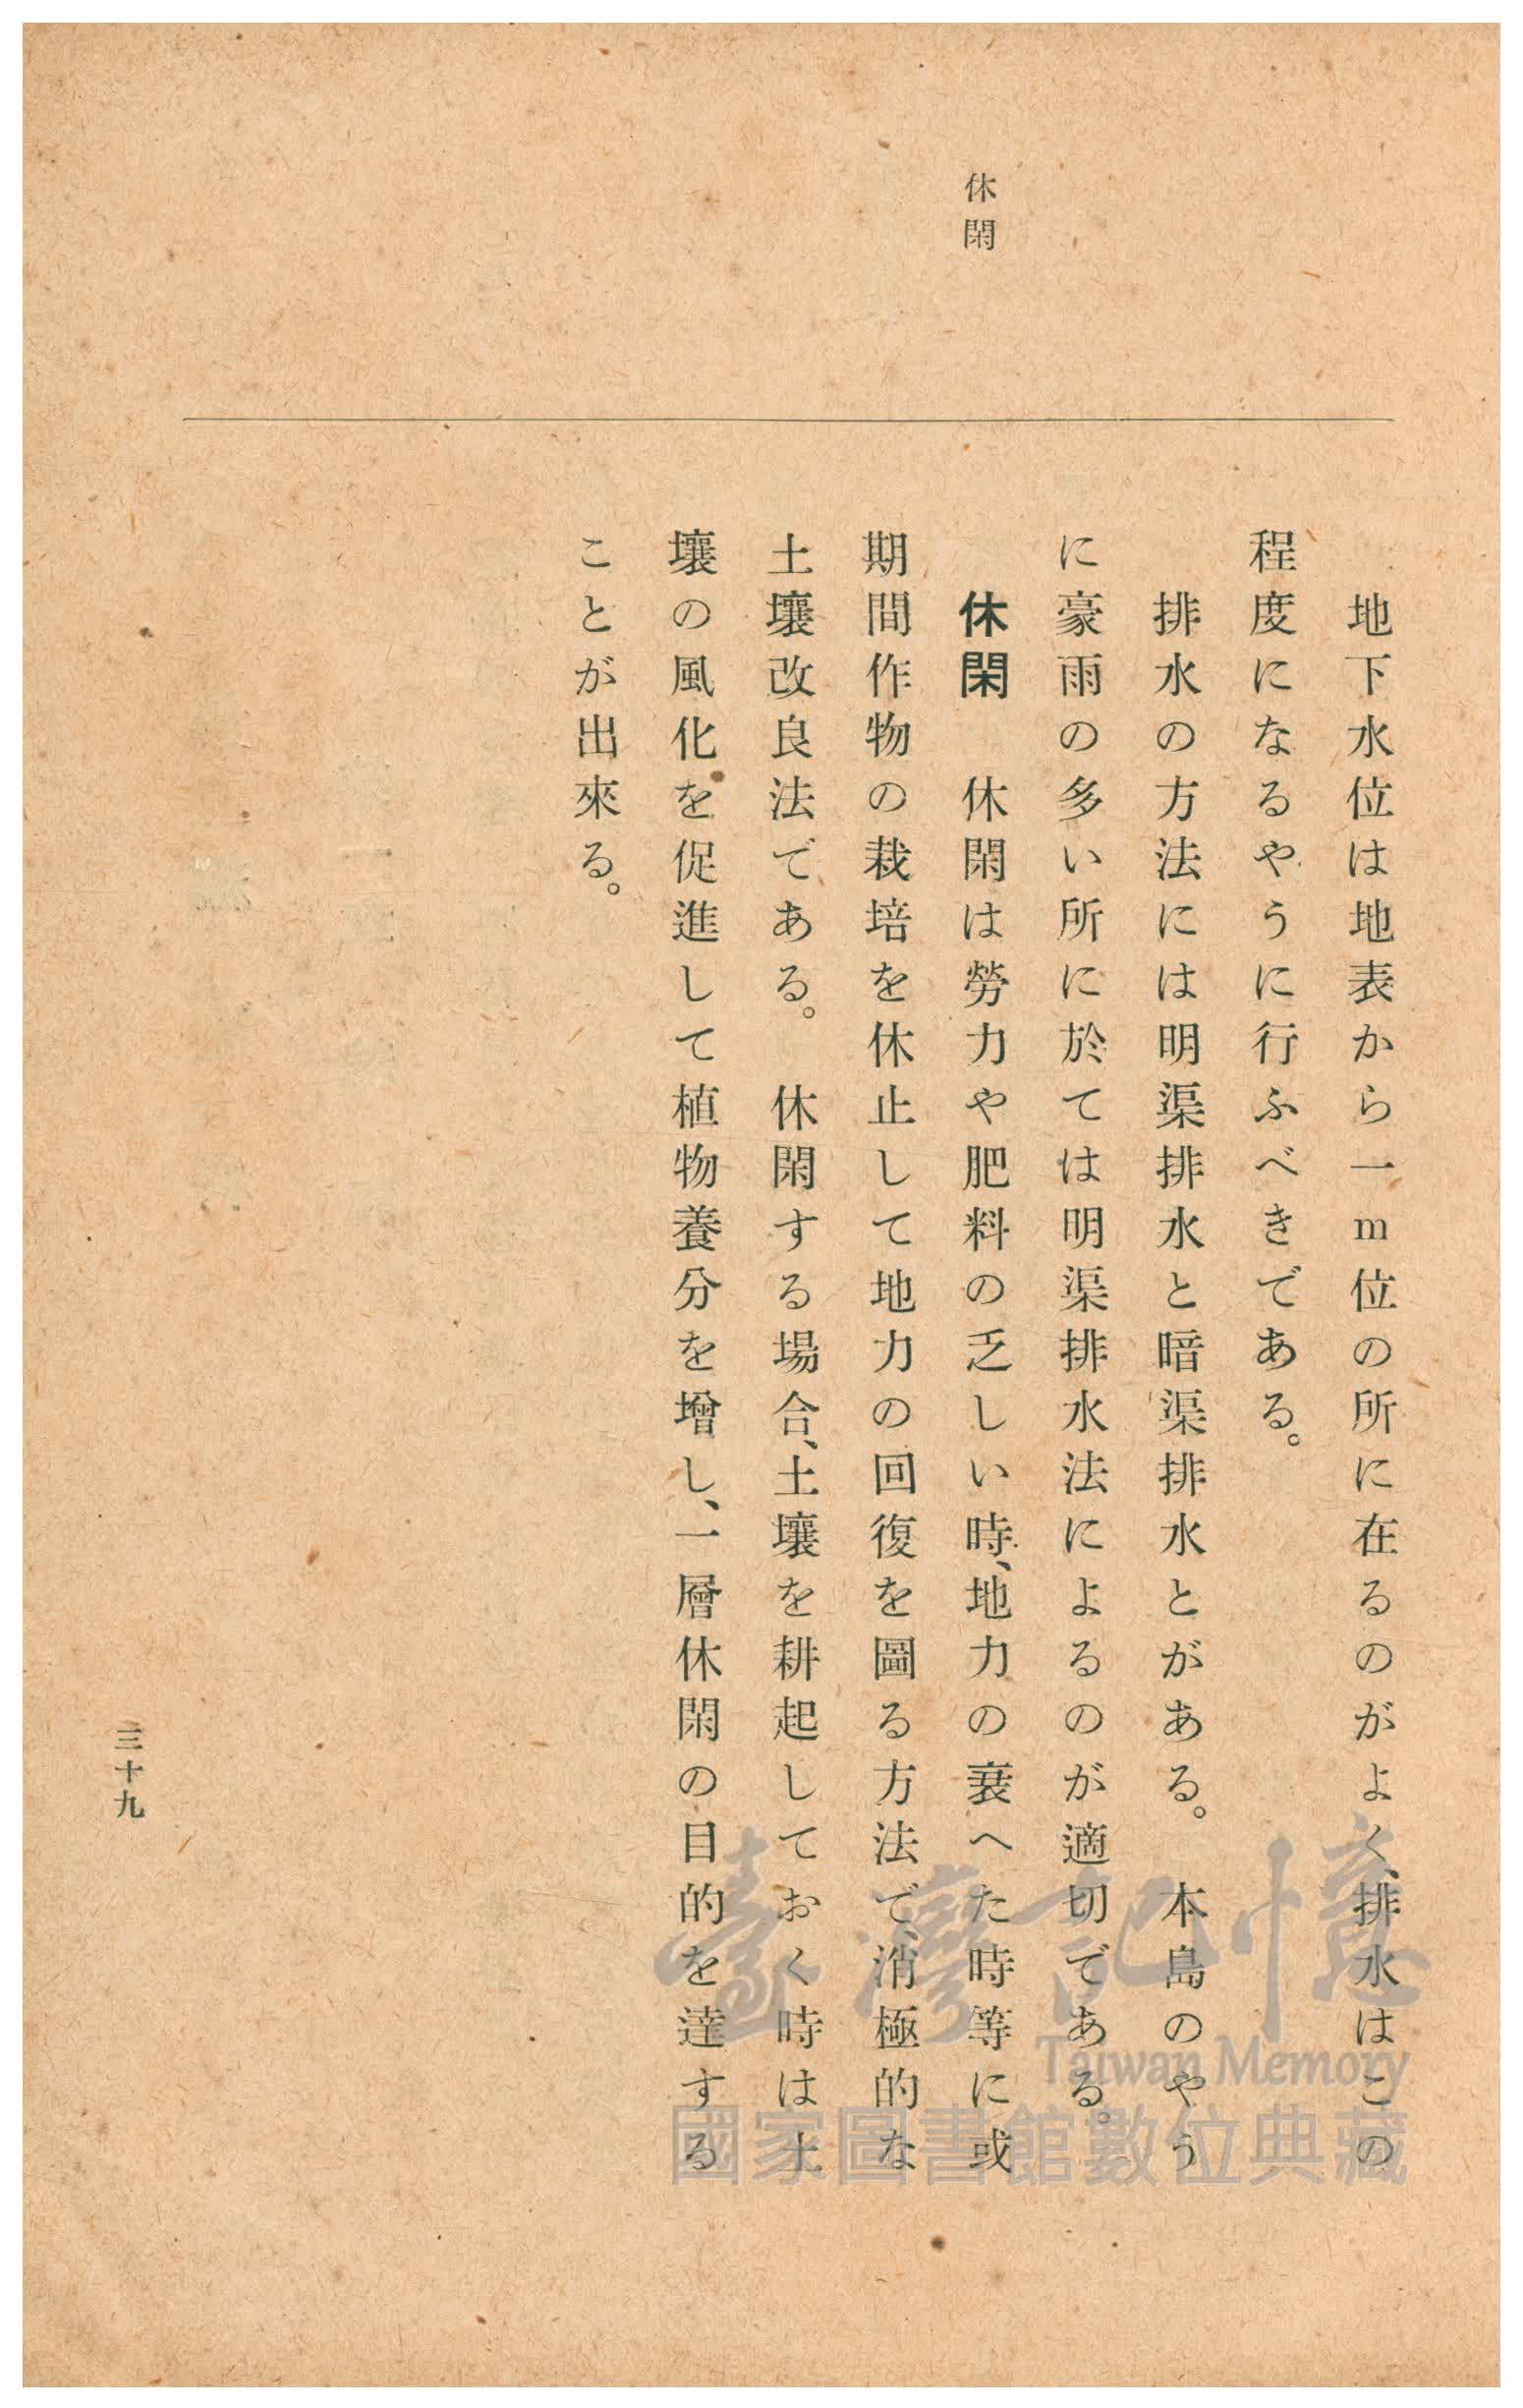 休閑
地下水位は地表から一m位の所に在るのがよく、排水はこの
程度になるやうに行ふべきである。
排水の方法には明渠排水と暗渠排水とがある。 本島のやう
に豪雨の多い所に於ては明渠排水法によるのが適切である。
休閑 休閑は勞力や肥料の乏しい時、地力の衰へた時等に或
期間作物の栽培を休止して地力の回復を圖る方法で、消極的な
土壤改良法である。 休閑する場合、土壤を耕起しておく時は土
壤の風化を促進して植物養分を增し、一層休閑の目的を達する
ことが出來る。
三十九
臺灣記憶
Taiwan Memory
國家圖書館數位典藏